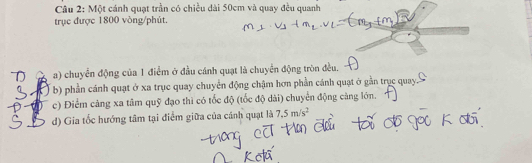 Câu 2: Một cánh quạt trần có chiều dài 50cm và quay đều quanh
trục được 1800 vòng/phút.
m1 . v1 + m2 . v2 = (m1 + m2)
Đ a) chuyển động của 1 điểm ở đầu cánh quạt là chuyển động tròn đều. Đ
S b) phần cánh quạt ở xa trục quay chuyển động chậm hơn phần cánh quạt ở gần trục quay. S
Đ c) Điểm càng xa tâm quỹ đạo thì có tốc độ (tốc độ dài) chuyển động càng lớn. Đ
S d) Gia tốc hướng tâm tại điểm giữa của cánh quạt là 7,5 m/s²
trong cđ tròn đều tốc độ góc K đổi
K đổi